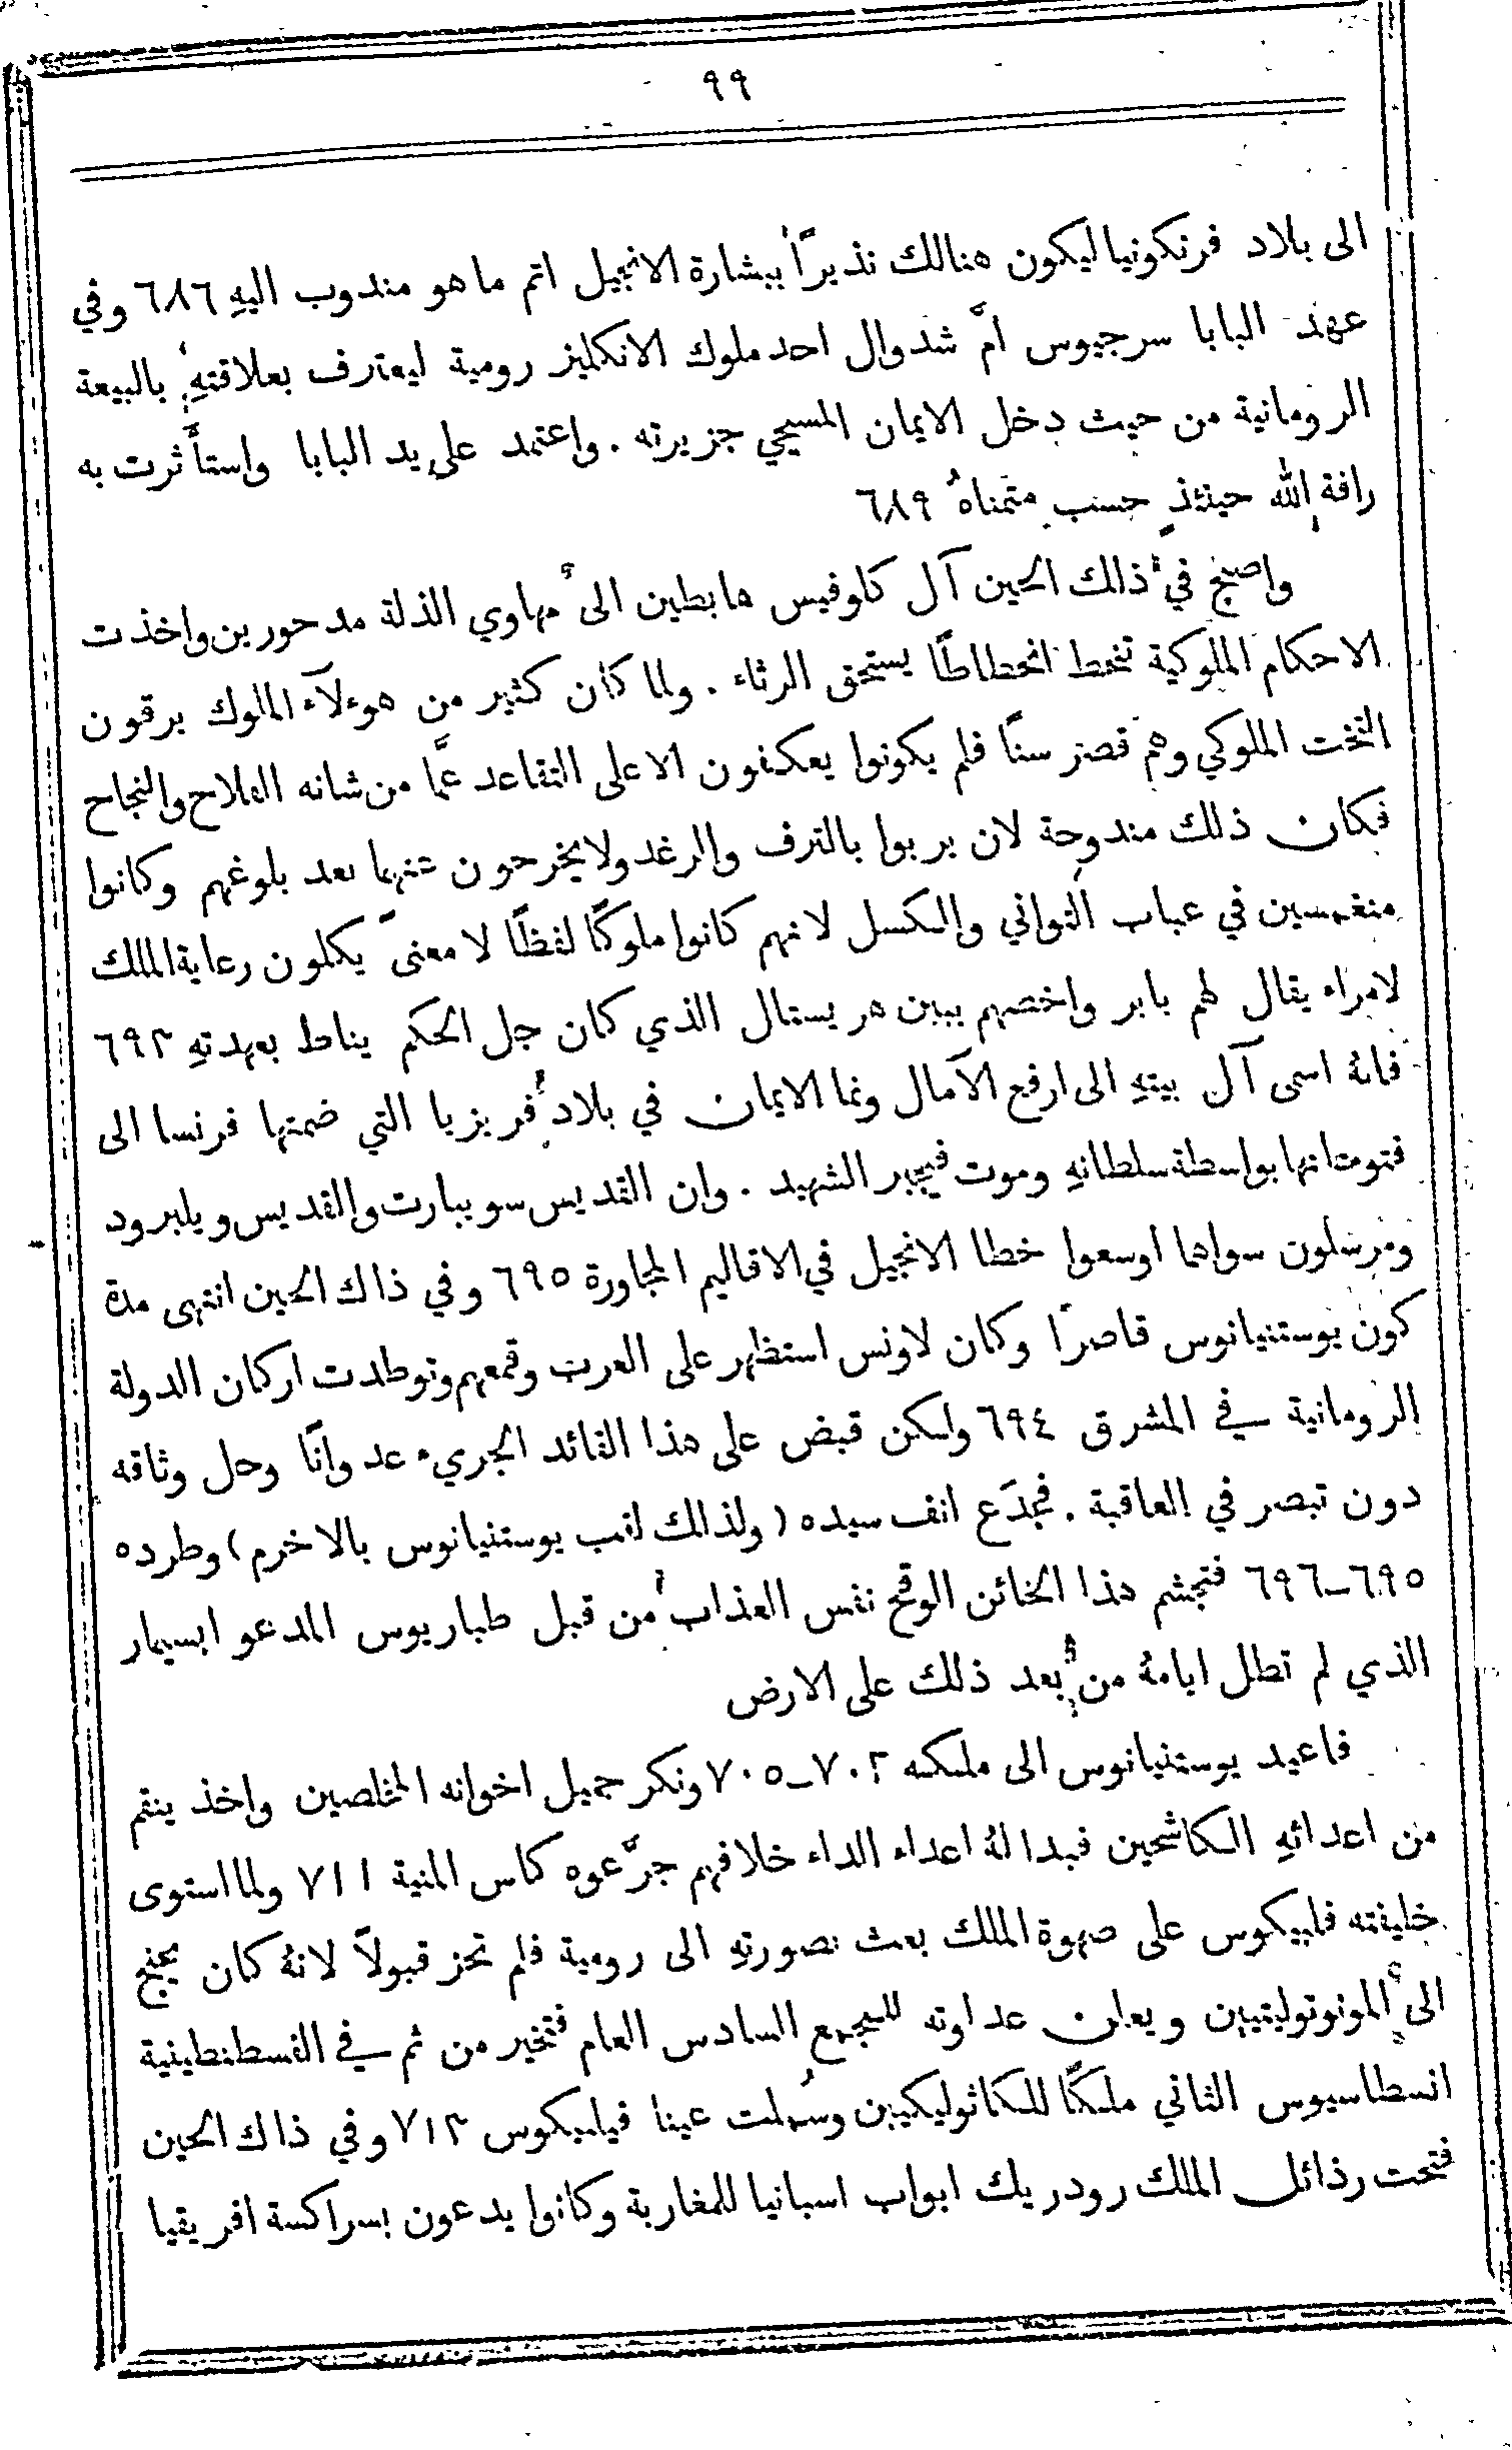 ٩٩
الى بلاد فرنكونيا ليكون هنالك نذيرًا ببشارة الانجيل اتم ما هو مندوب اليهِ ٦٨٦ وفي
عهد البابا سرجيوس امَّ شدوال احد ملوك الانكليز رومية ليعترف بعلاقتهِ بالبيعة
الرومانية من حيث دخل الايمان المسيحي جزيرته . واعتمد على يد البابا واستأثرت به
رافة الله حينئذٍ حسب متمناهُ ٦٨٩
واصبح في ذلك الحين آل كلوفيس هابطين الى مهاوي الذلة مدحورين واخذت
الاحكام الملوكية تنحط انحطاطًا يستحق الرثاء . ولما كان كثير من هوءلآء الملوك يرقون
التخت الملوكي وهم قصر سنًا فلم يكونوا يعكفون الا على التقاعد عمَّا من شانه الفلاح والنجاح
فكان ذلك مندوحة لان يربوا بالترف والرغد ولا يخرحون عنهما بعد بلوغهم وكانوا
منغمسين في عباب التواني والكسل لانهم كانوا ملوكًا لفظًا لا معنىً يكلون رعاية الملك
لامراء يقال لهم باير واخصهم ببين هريستال الذي كان جل الحكم يناط بعهدتهِ ٦٩٢
فانهُ اسمى آل بيتهِ الى ارفع الآمال ونما الايمان في بلاد فريزيا التي ضمتها فرنسا الى
فتوحاتها بواسطة سلطانهِ وموت فيجبر الشهيد . وان القديس سويبارت والقديس ويلبرود
ومرسلون سواهما اوسعوا خطا الانجيل في الاقاليم المجاورة ٦٩٥ وفي ذاك الحين انتهى مدة
كون يوستنيانوس قاصرًا وكان لاونس استظهر على العرب وقمعهم وتوطدت اركان الدولة
الرومانية في المشرق ٦٩٤ ولكن قبض على هذا القائد الجريء عدوانًا وحل وثاقه
دون تبصر في العاقبة . فجدَع انف سيده (ولذلك لقب يوستنيانوس بالاخرم) وطرده
٦٩٥–٦٩٦ فتجشم هذا الخائن الوقح نفس العذاب من قبل طباريوس المدعو ابسيمار
الذي لم تطل ايامهُ من بعد ذلك على الارض
فاعيد يوستنيانوس الى ملكه ٧٠٢–٧٠٥ ونكر جميل اخوانه المخلصين واخذ ينتقم
من اعدائهِ الكاشحين فبدا لهُ اعداء الداء خلافهم جرَّعوه كاس المنية ٧١١ ولما استوى
خليفته فلبيكوس على صهوة الملك بعث بصورتهِ الى رومية فلم تحز قبولاً لانهُ كان يجنح
الى المونوتوليتيين ويعلن عداوته للمجمع السادس العام فتخير من ثم في القسطنطينية
انسطاسيوس الثاني ملكًا للكاثوليكيين وسُملت عينا فيليبكوس ٧١٣ وفي ذاك الحين
فتحت رذائل الملك رودريك ابواب اسبانيا للمغاربة وكانوا يدعون بسراكسة افريقيا